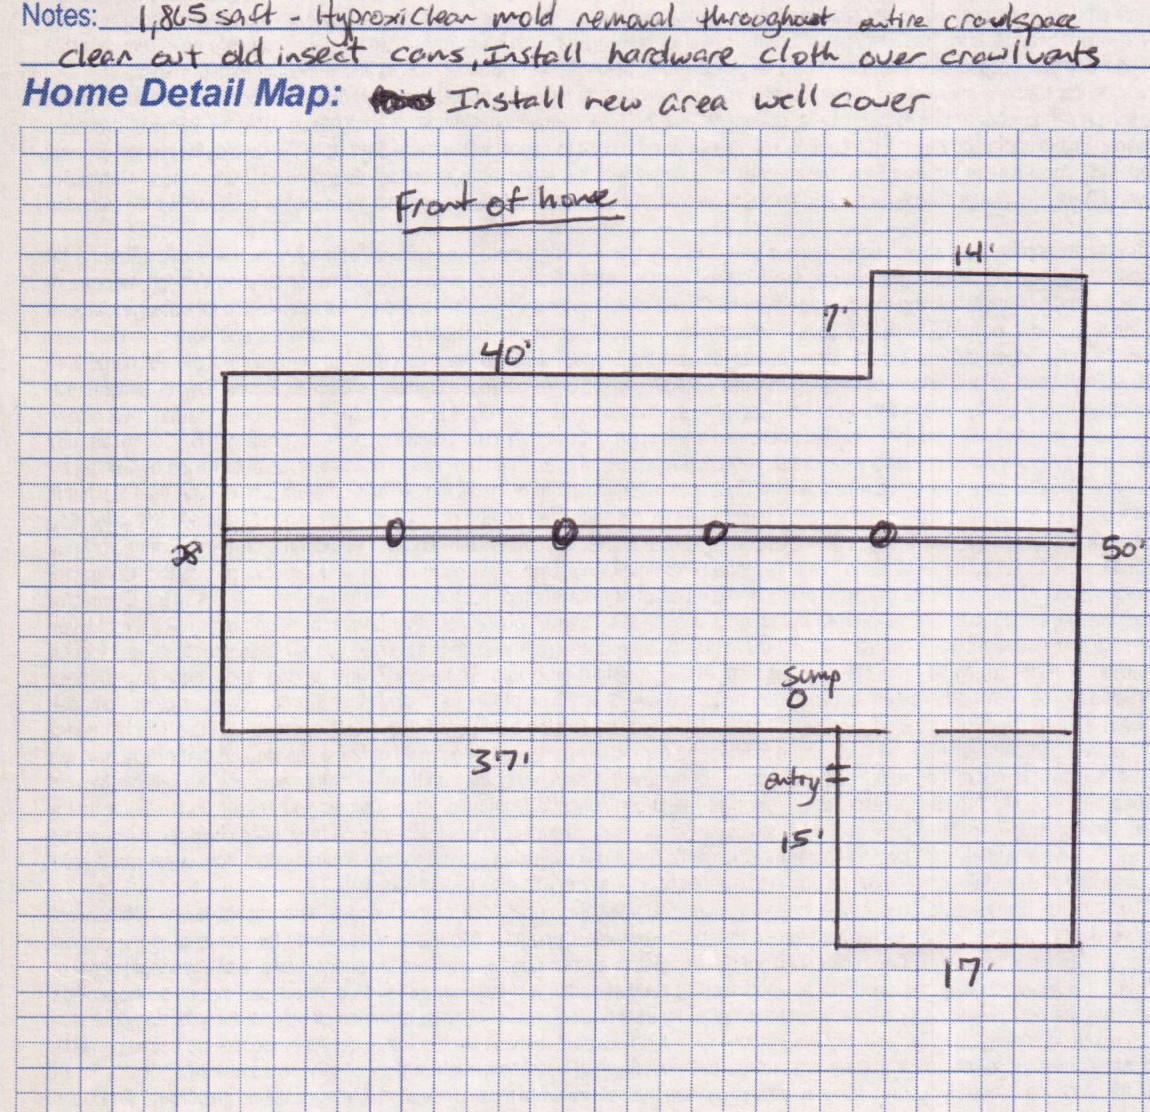 Notes: 1,865 sqft - Hyproxiclean mold removal throughout entire crawlspace
clean out old insect cans, Install hardware cloth over crawlvents
Home Detail Map: Install new area well cover
Front of home
14'
7'
40'
28'
50'
Sump
37'
entry
15'
17'